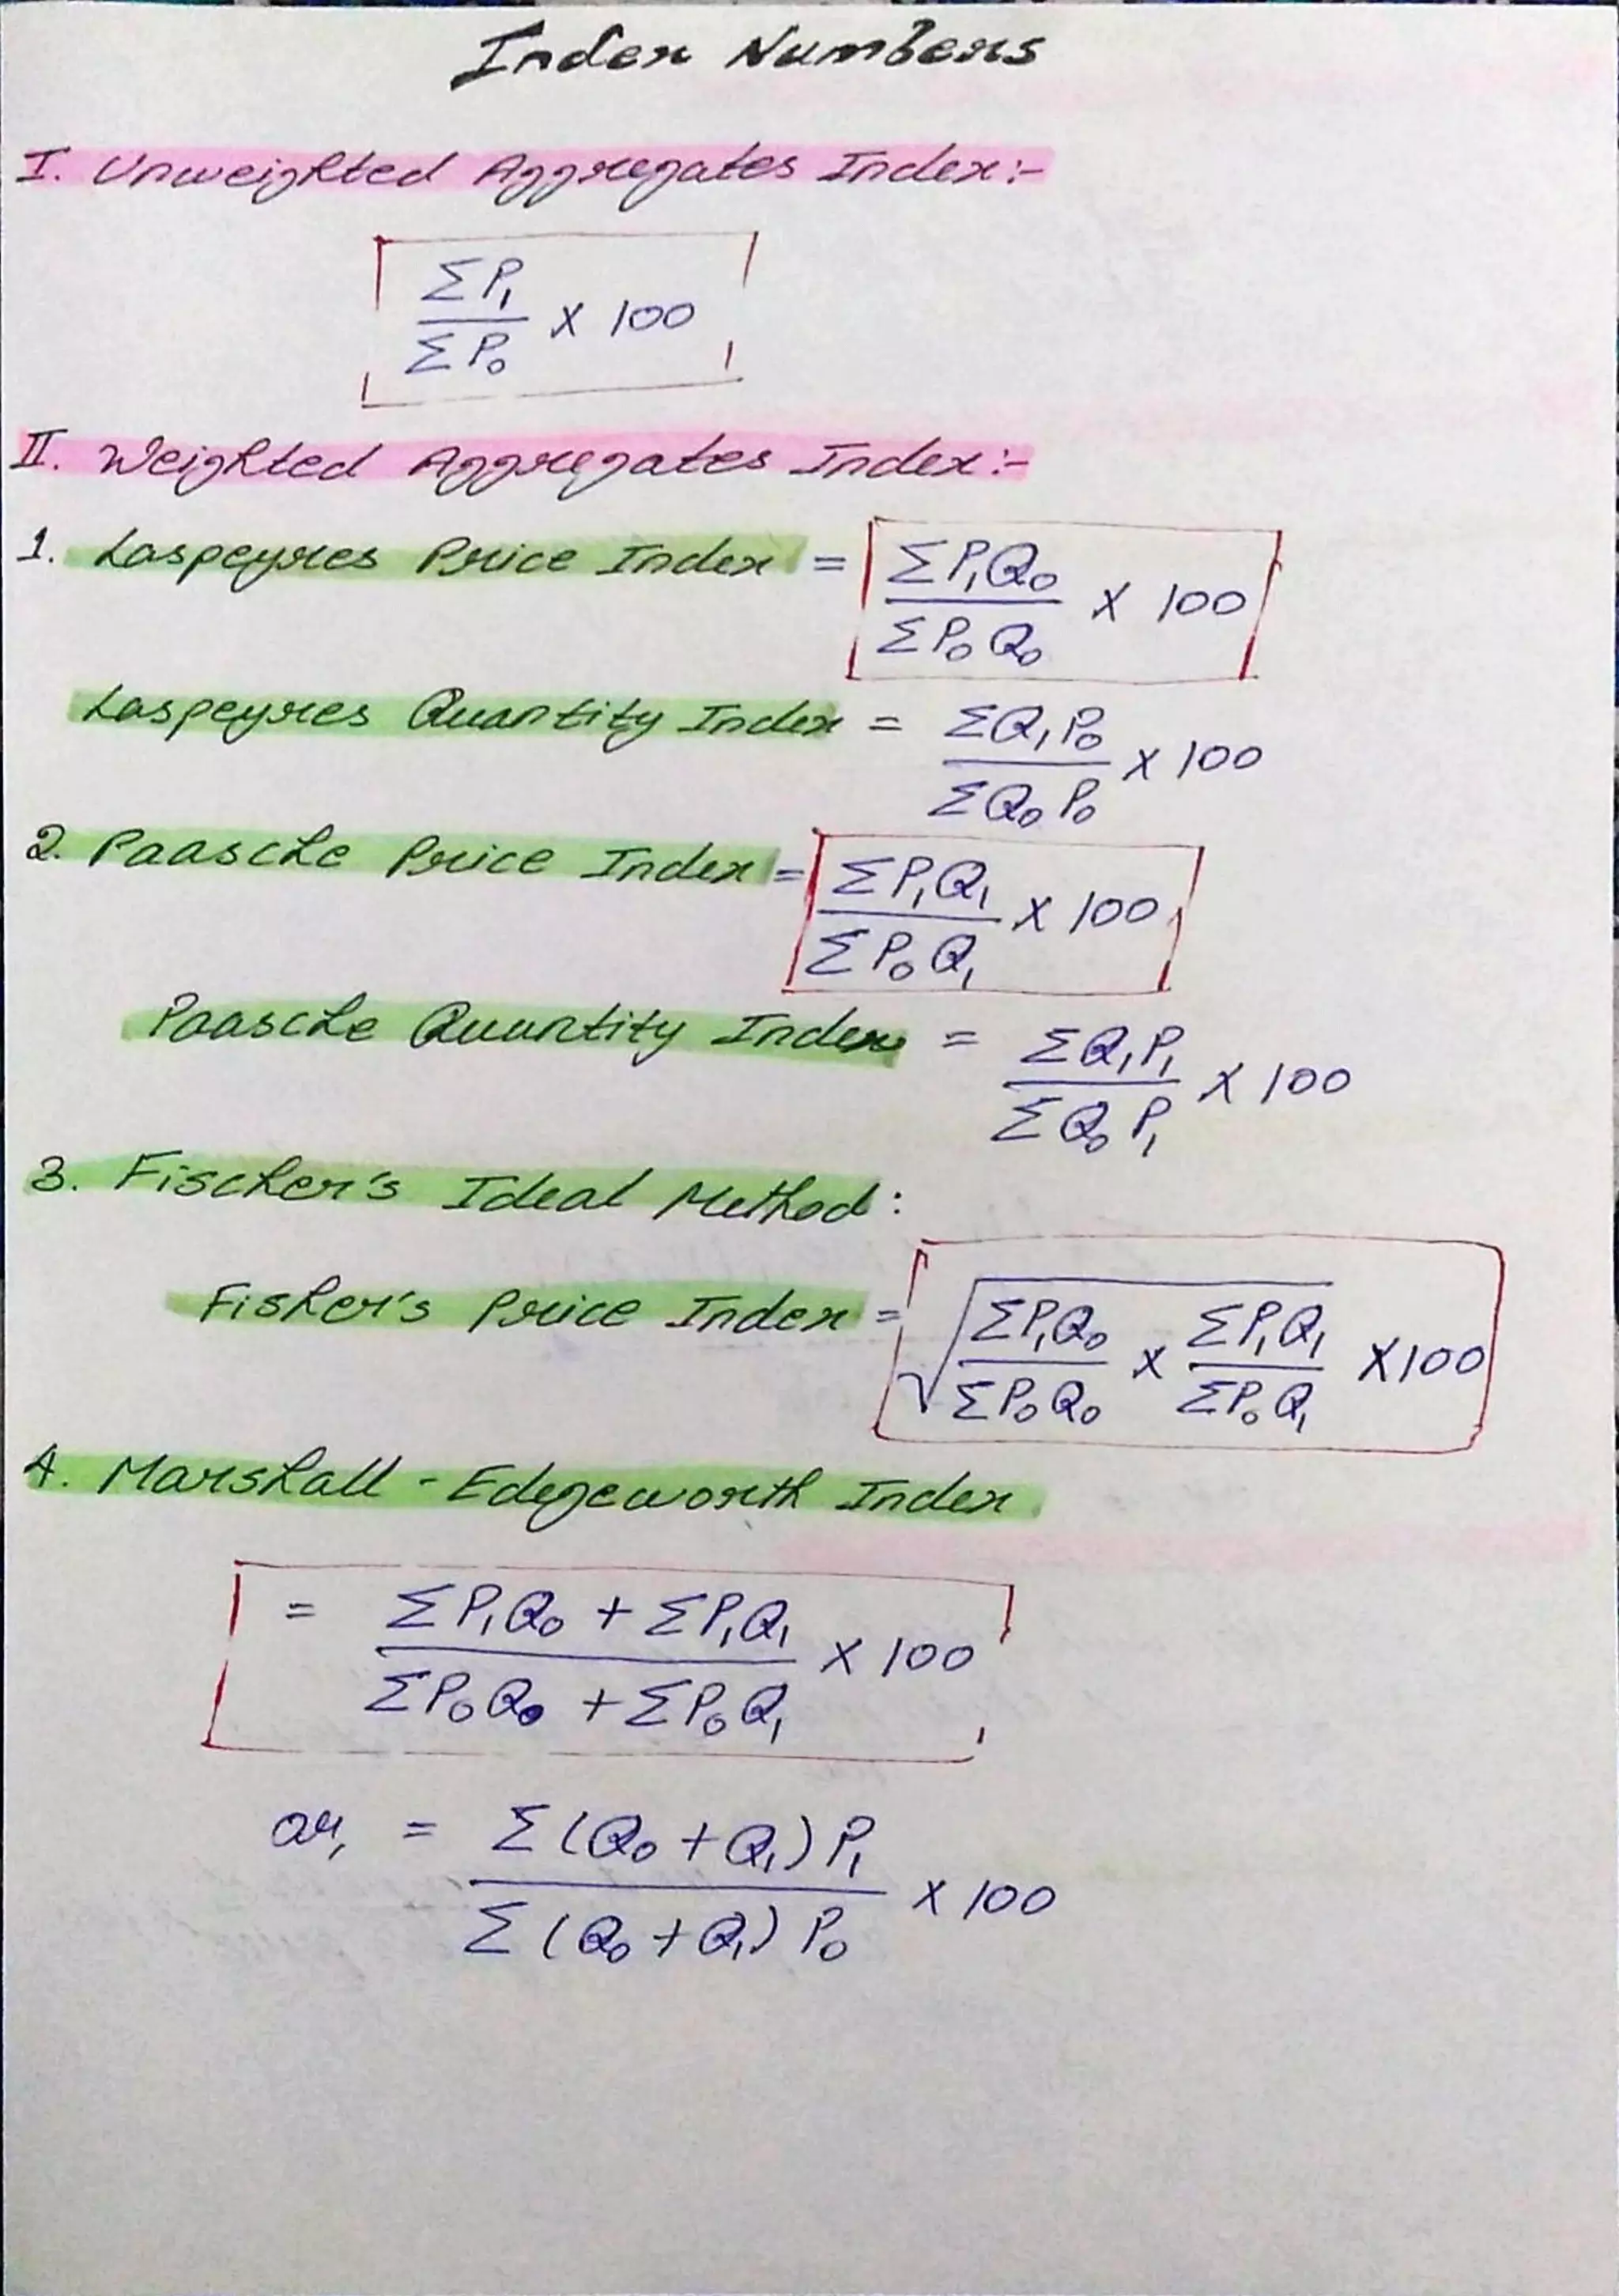 Index Numbers
I. Unweighted Aggregates Index:-
ΣP₁
ΣP₀ × 100
II. Weighted Aggregates Index:-
1. Laspeyres Price Index = ΣP₁Q₀
ΣP₀Q₀ × 100
Laspeyres Quantity Index = ΣQ₁P₀
ΣQ₀P₀ × 100
2. Paasche Price Index = ΣP₁Q₁
ΣP₀Q₁ × 100
Paasche Quantity Index = ΣQ₁P₁
ΣQ₀P₁ × 100
3. Fischer's Ideal Method:
Fisher's Price Index = √ ΣP₁Q₀ × ΣP₁Q₁
ΣP₀Q₀ ΣP₀Q₁ × 100
4. Marshall - Edgeworth Index
= ΣP₁Q₀ + ΣP₁Q₁
ΣP₀Q₀ + ΣP₀Q₁ × 100
or, = Σ(Q₀+Q₁)P₁
Σ(Q₀+Q₁)P₀ × 100